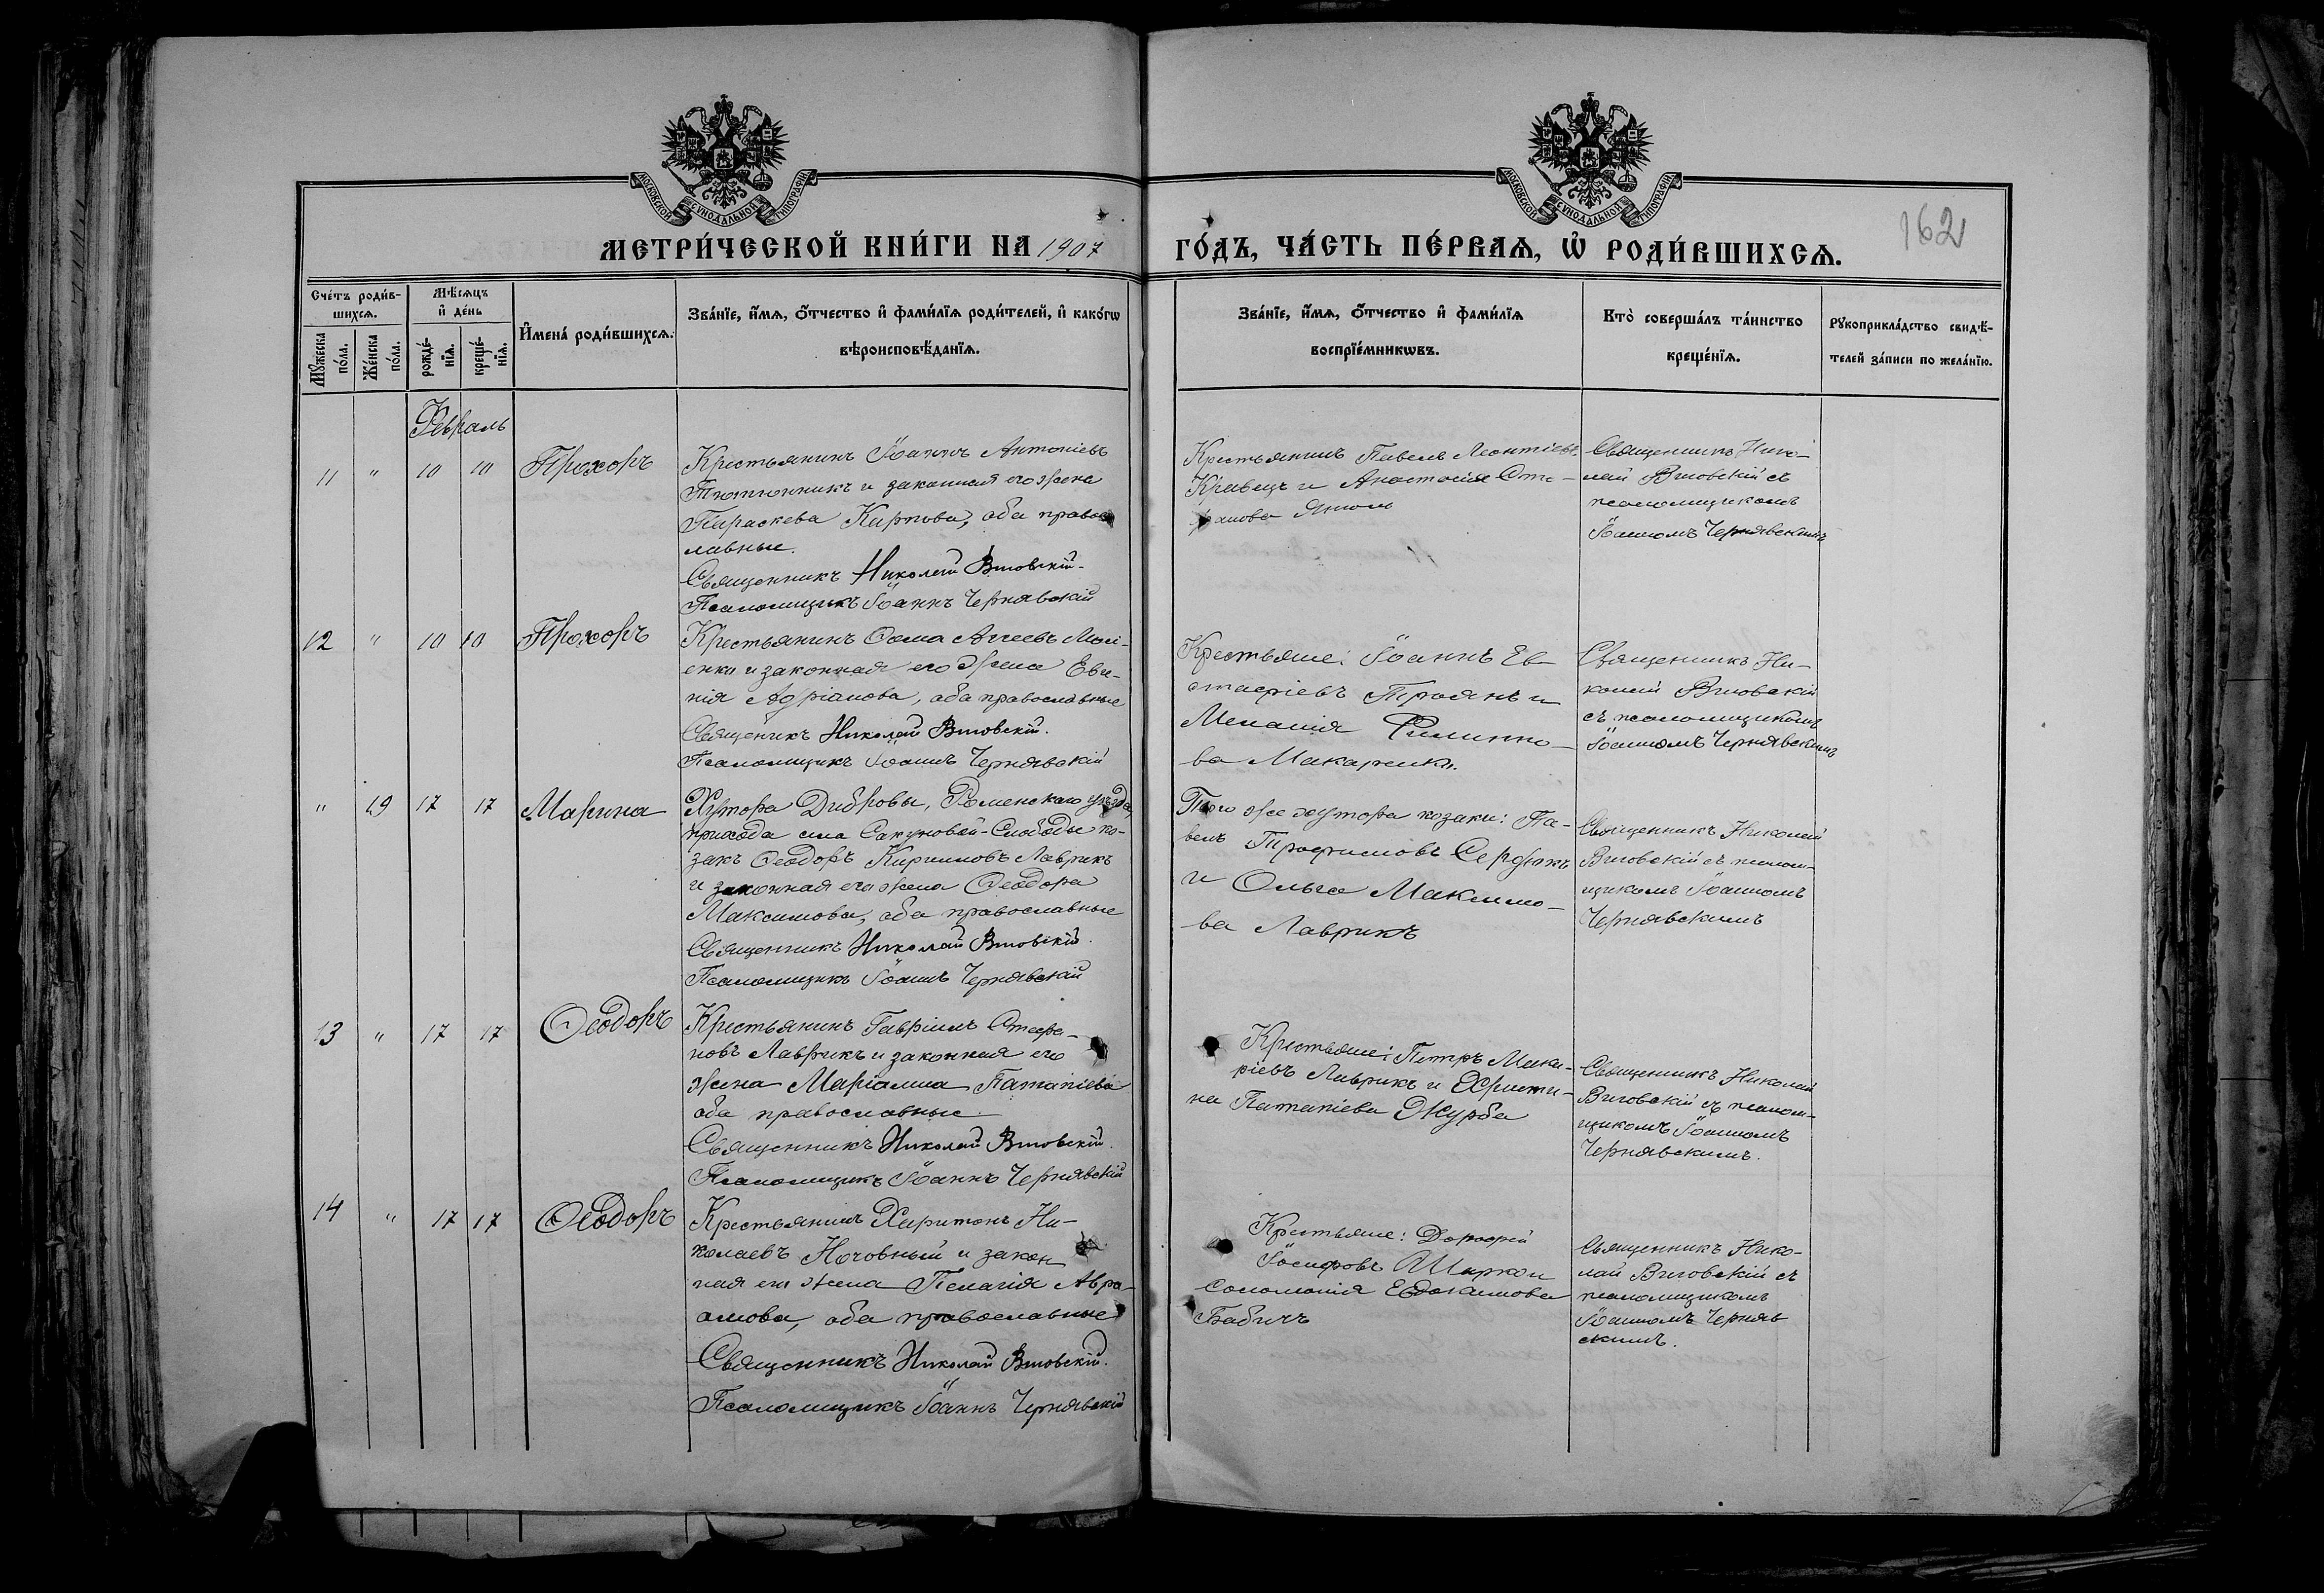 МОСКОВСКОЙ СѴНОДАЛЬНОЙ ТИПОГРАФІИ
МОСКОВСКОЙ СѴНОДАЛЬНОЙ ТИПОГРАФІИ
162
МЕТРИ́ЧЕСКОЙ КНИ́ГИ НА 1907
ГО́ДЪ, ЧА́СТЬ ПЕ́РВАѦ, Ѽ РОДИ́ВШИХСѦ.
Сче́тъ роди́в-
шихсѧ.
Мꙋ́жеска
по́ла.
Же́нска
по́ла.
Мѣ́сѧцъ
и҆ де́нь
рожде́-
нїѧ.
креще́-
нїѧ.
И҆мена́ роди́вшихсѧ.
Зва́нїе, и҆́мѧ, ѻ҆́тчество и҆ фами́лїѧ роди́телей, и҆ како́гѡ
вѣроисповѣ́данїѧ.
Зва́нїе, и҆́мѧ, ѻ҆́тчество и҆ фами́лїѧ
воспрїе́мникѡвъ.
Кто̀ соверша́лъ та́инство
креще́нїѧ.
Рꙋкоприкла́дство свидѣ́-
телей за́писи по жела́нїю.
Февраль
11 " 10 10 Прохоръ
Крестьянинъ Іоаннъ Антоніевъ
Тютюнникъ и законная его жена
Параскева Карпова, оба право
лавные.
Священникъ Николай
Псаломщикъ Іоаннъ Чернявскій
Крестьянинъ Павелъ Леонтіевъ
Кравецъ и Анастасія Сте-
фанова
Священникъ Нико-
лай съ
псаломщикомъ
Іоанномъ Чернявскимъ
12 " 10 10 Прохоръ
Крестьянинъ Ѳома Аггеевъ
енко и законная его жена Евге-
нія Адріанова, оба православные
Священикъ Николай
Псаломщикъ Іоаннъ Чернявскій
Крестьяне: Іоаннъ Ев-
стафіевъ Троянъ и
Меланія Филиппо-
ва Макаренко.
Священникъ Ни-
колай
съ псаломщикомъ
Іоанномъ Чернявскимъ
" 19 17 17 Марина
Хутора Дибровы, Роменскаго уѣзда,
прихода села Сакуновой-Слободы ко-
закъ Ѳеодоръ Кирилловъ Лаврикъ
и законная его жена Ѳеодора
Максимова, оба православные
Священникъ Николай
Псаломщикъ Іоаннъ Чернявскій
Того же хутора козаки: Па-
велъ Трофимовъ Сердюкъ
и Ольга Максимо-
ва Лаврикъ
Священникъ Николай
съ псалом-
щикомъ Іоанномъ
Чернявскимъ
13 " 17 17 Ѳеодоръ
Крестьянинъ Гавріилъ Стефа-
новъ Лаврикъ и законная его
жена Маріамна Патапіева
оба православные
Священникъ Николай
Псаломщикъ Іоаннъ Чернявскій
Крестьяне: Петръ Мака-
ріевъ Лаврикъ и Христи-
на Патапіева Журба
Священникъ Николай
съ псалом-
щикомъ Іоанномъ
Чернявскимъ.
14 " 17 17 Ѳеодоръ
Крестьянинъ Харитонъ Ни-
колаевъ Ночовный и закон
ная его жена Пелагія Авра-
амова, оба православные
Священникъ Николай
Псаломщикъ Іоаннъ Чернявскій
Крестьяне: Дорофей
Іосифовъ
Соломонія Евдокимова
Бабичъ
Священникъ Нико-
лай съ
псаломщикомъ
Іоанномъ Черняв
скимъ.